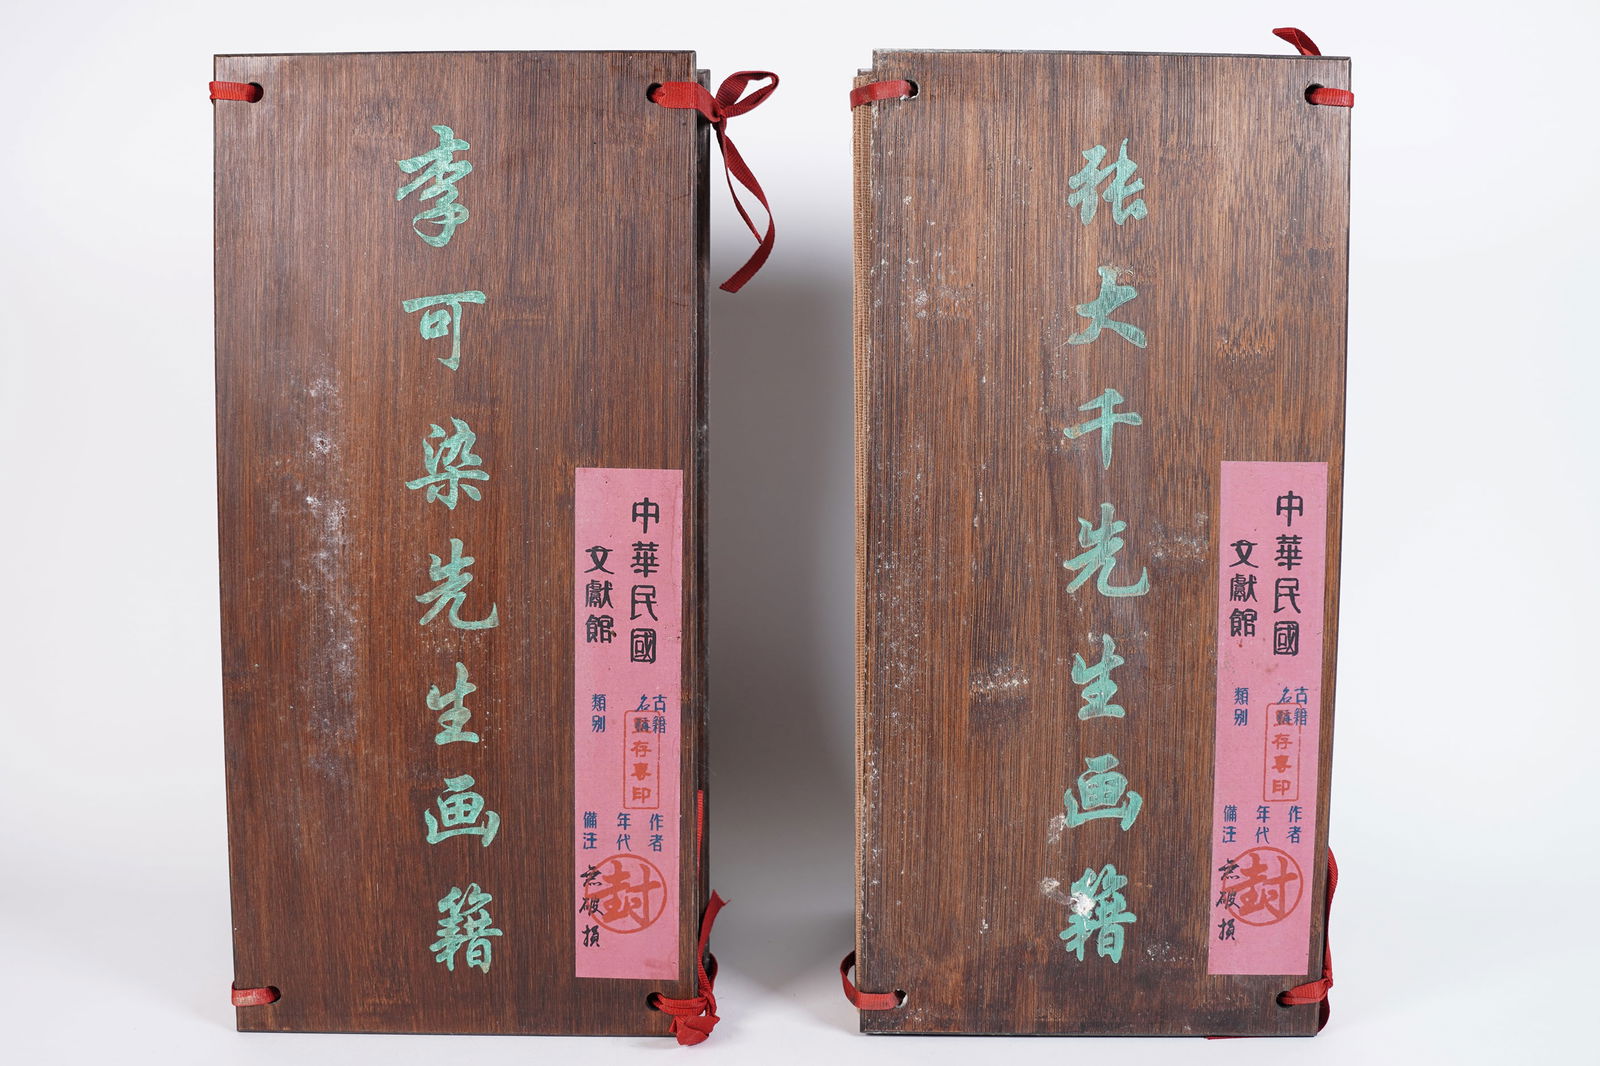 李可染先生画籍
中華民國
文獻館
古籍
名稱
類别
存專印
作者
年代
備注
無破損
封
张大千先生画籍
中華民國
文獻館
古籍
名稱
類别
存專印
作者
年代
備注
無破損
封